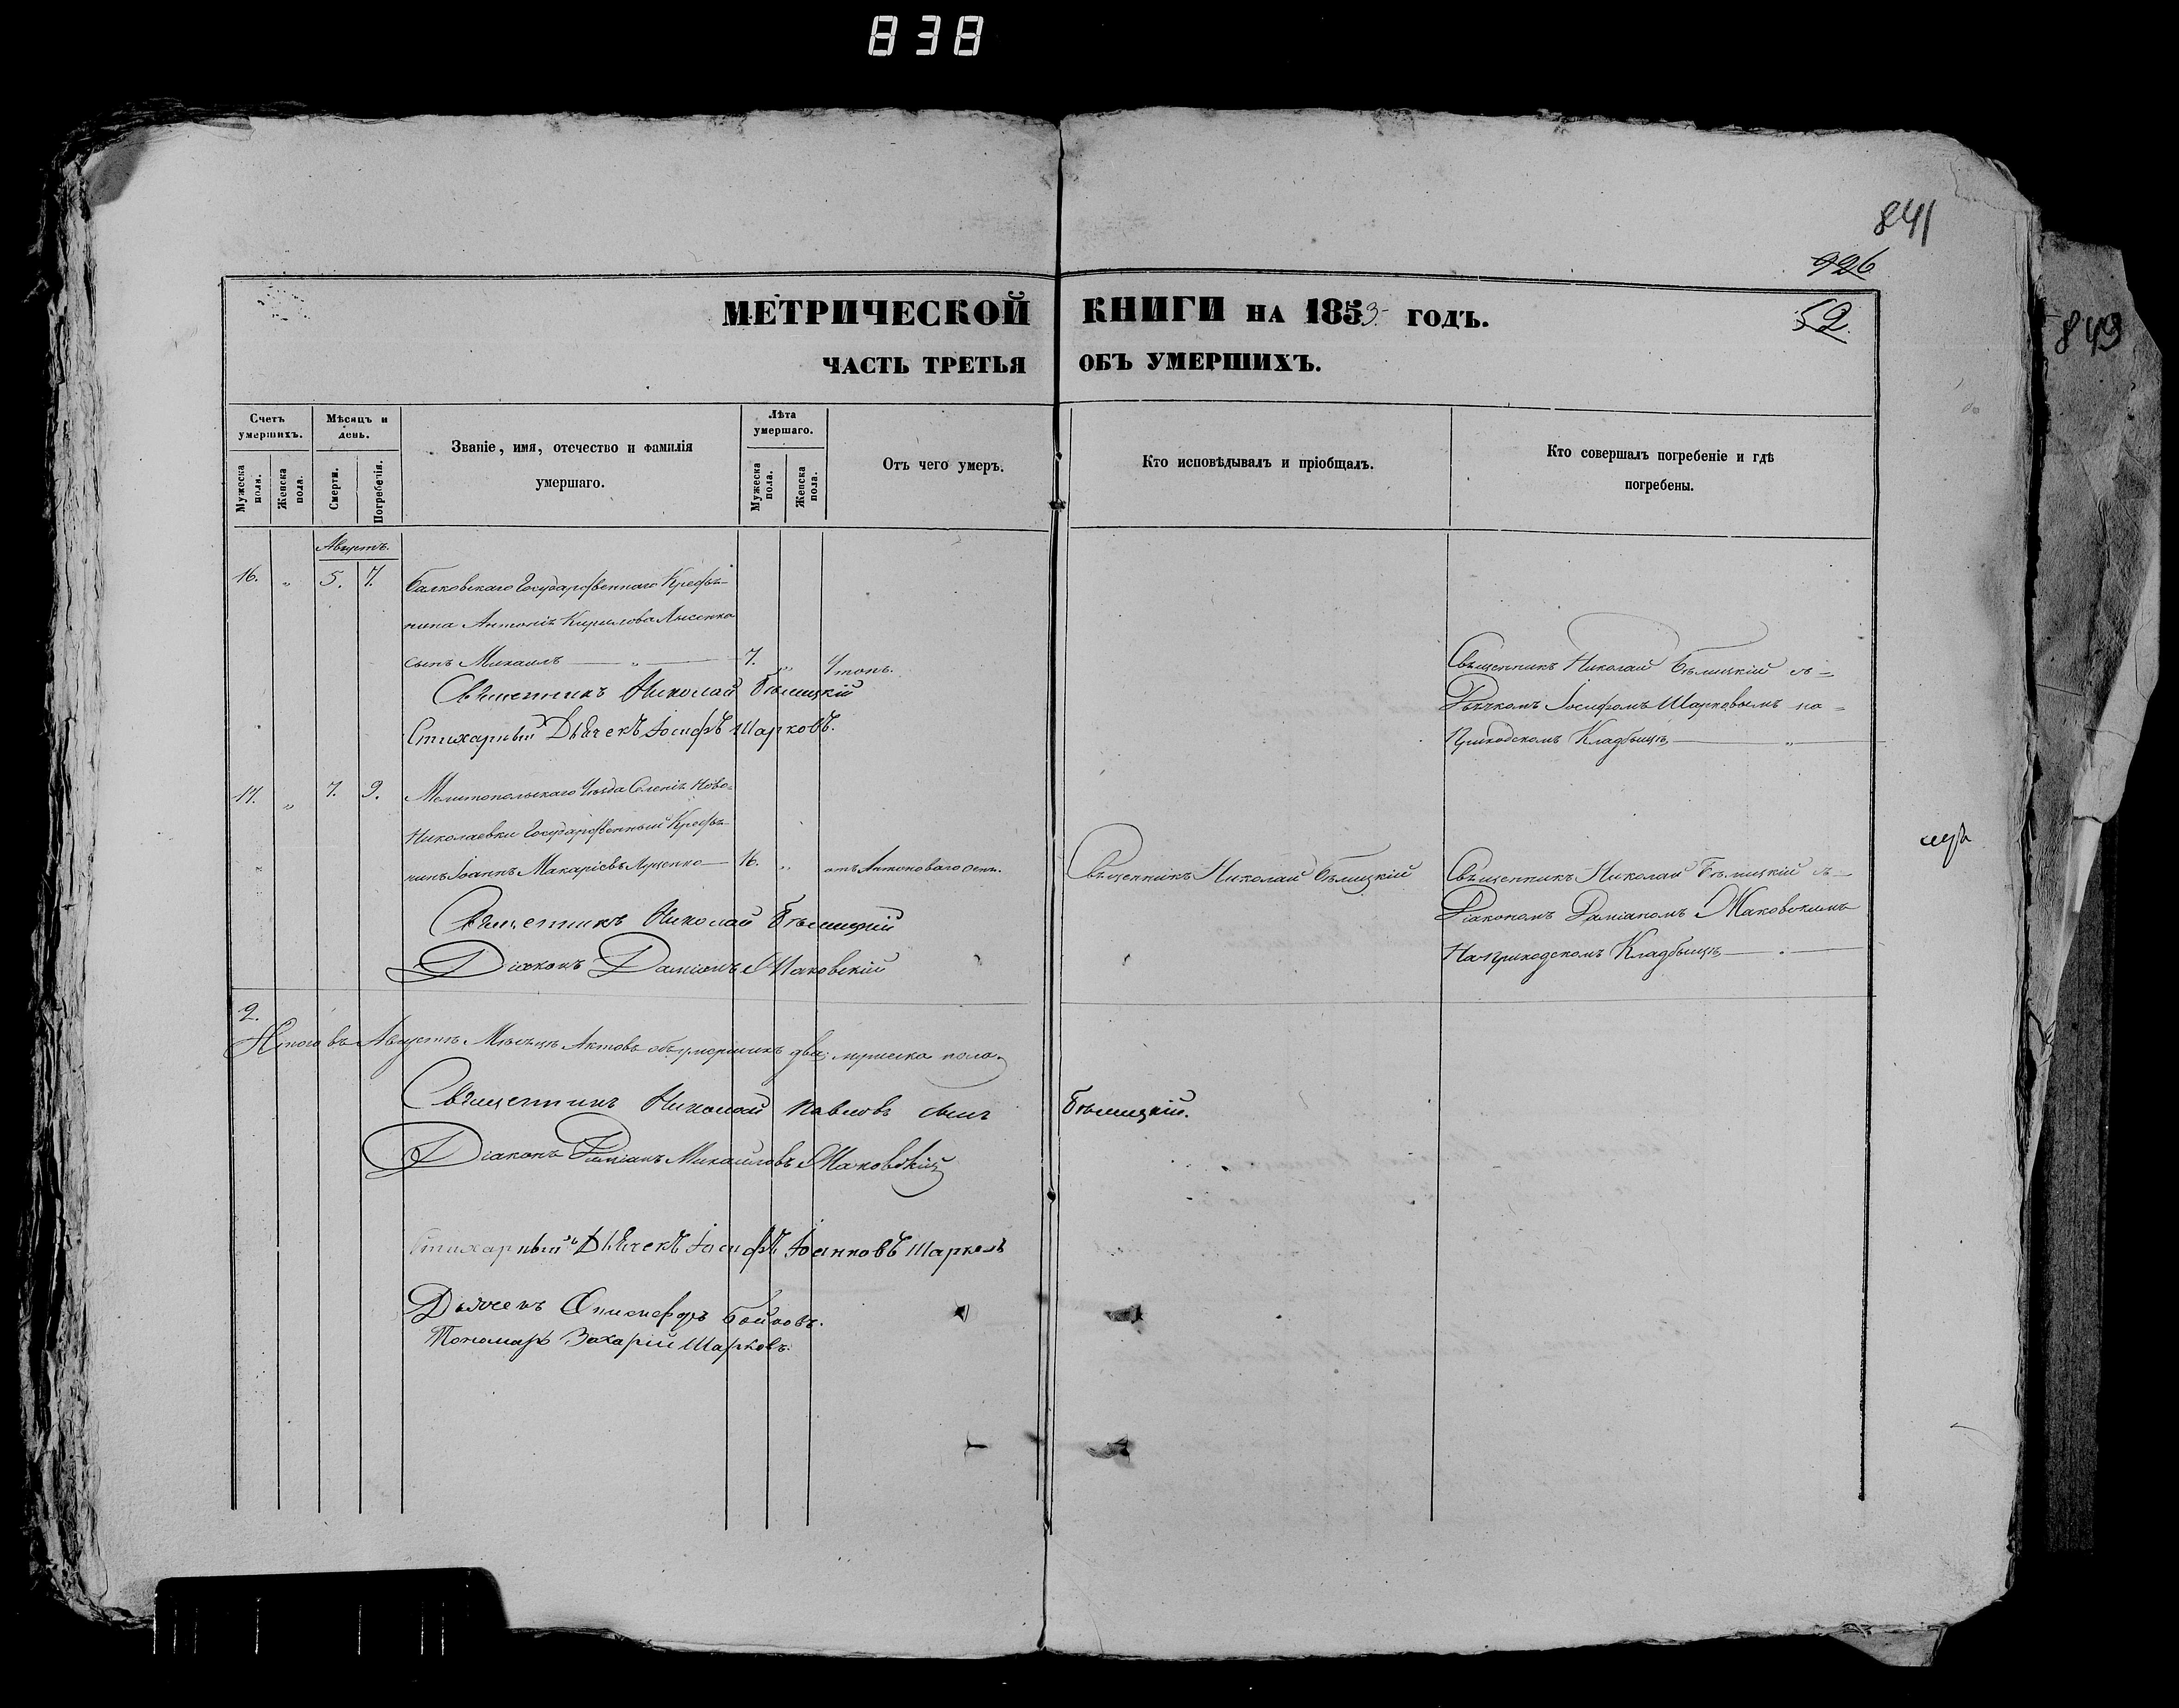 838
841
926
52.
843
МЕТРИЧЕСКОЙ КНИГИ НА 1853 ГОДЪ.
ЧАСТЬ ТРЕТЬЯ ОБЪ УМЕРШИХЪ.
Счетъ умершихъ.
Мужеска пола.
Женска пола.
Мѣсяцъ и день.
Смерти.
Погребенія.
Званіе, имя, отечество и фамилія
умершаго.
Лѣта умершаго.
Мужеска пола.
Женска пола.
Отъ чего умеръ.
Кто исповѣдывалъ и пріобщалъ.
Кто совершалъ погребеніе и гдѣ
погребены.
Августъ.
16. „ 5. 7. Балковскаго Государственнаго Крестья-
нина Антонія Кирилова Лысенка
сынъ Михаилъ — „ — 7. „
Священникъ Николай Бѣлицкій
Стихарный Дьячекъ Іосифъ Шарковъ.
Священникъ Николай Бѣлицкій съ=
Дьячкомъ Іосифомъ Шарковымъ на=
Приходскомъ Кладбищѣ — „ —
17. „ 7. 9. Мелитопольскаго Уѣзда Селенія Ново=
Николаевки Государственный Крестья-
нинъ Іоаннъ Макаріевъ Луценко — 16. „ отъ Антоноваго огня.
Священникъ Николай Бѣлицкій
Діаконъ Даміанъ Маковскій
Священникъ Николай Бѣлицкій
Священникъ Николай Бѣлицкій съ—
Діакономъ Даміаномъ Маковскимъ
На приходскомъ Кладбищѣ — . —
2.
Итого въ Августѣ Мѣсяцѣ Актовъ объ умершихъ два; мужеска пола.
Священникъ Николай Павловъ сынъ Бѣлицкій.
Діаконъ Даміанъ Михайловъ Маковскій
Стихарный Дьячекъ Іосифъ Іоанновъ Шарковъ
Дьячекъ Онисифоръ Бойковъ.
Пономарь Захарій Шарковъ.